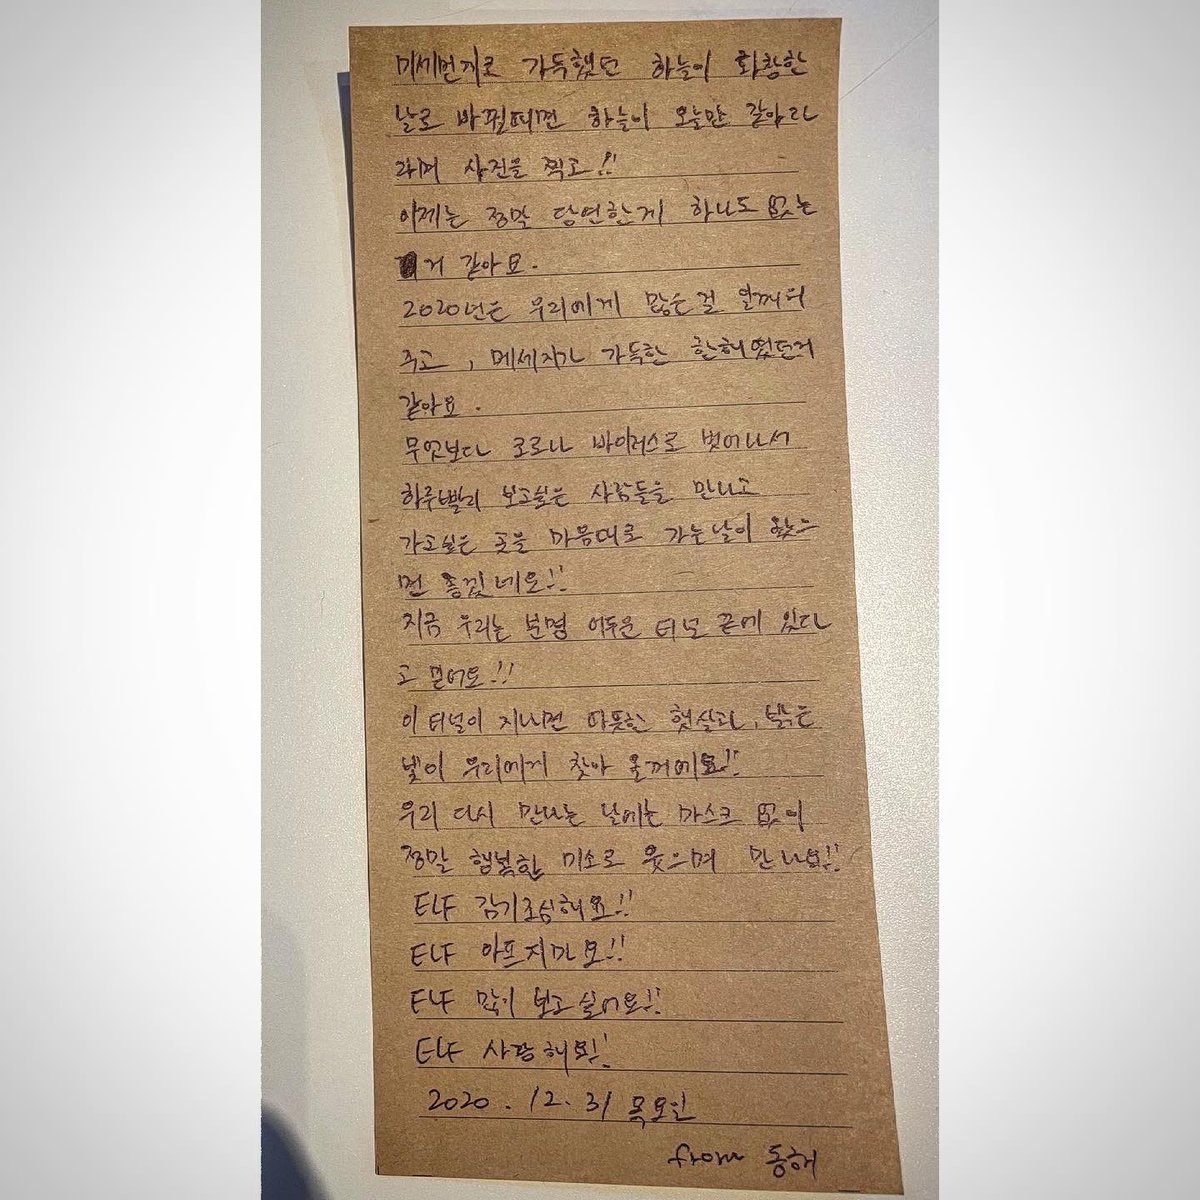 미세먼지로 가득했던 하늘이 화창한
날로 바뀔때면 하늘이 오늘만 같아라
라며 사진을 찍고!!
이제는 정말 당연한게 하나도 없는
거 같아요.
2020년은 우리에게 많은걸 일깨워
주고, 메세지가 가득한 한해였던거
같아요.
무엇보다 코로나 바이러스로 벗어나서
하루빨리 보고싶은 사람들을 만나고
가고싶은 곳을 마음대로 가는날이 왔으
면 좋겠네요!!
지금 우리는 분명 어두운 터널 끝에 있다
고 믿어요!!
이 터널이 지나면 따뜻한 햇살과, 밝은
빛이 우리에게 찾아 올꺼에요!!
우리 다시 만나는 날에는 마스크 없이
정말 행복한 미소로 웃으며 만나요!!
ELF 감기조심해요!!
ELF 아프지마요!!
ELF 많이 보고싶어요!!
ELF 사랑해요!!
2020. 12. 31 목요일
from 동해